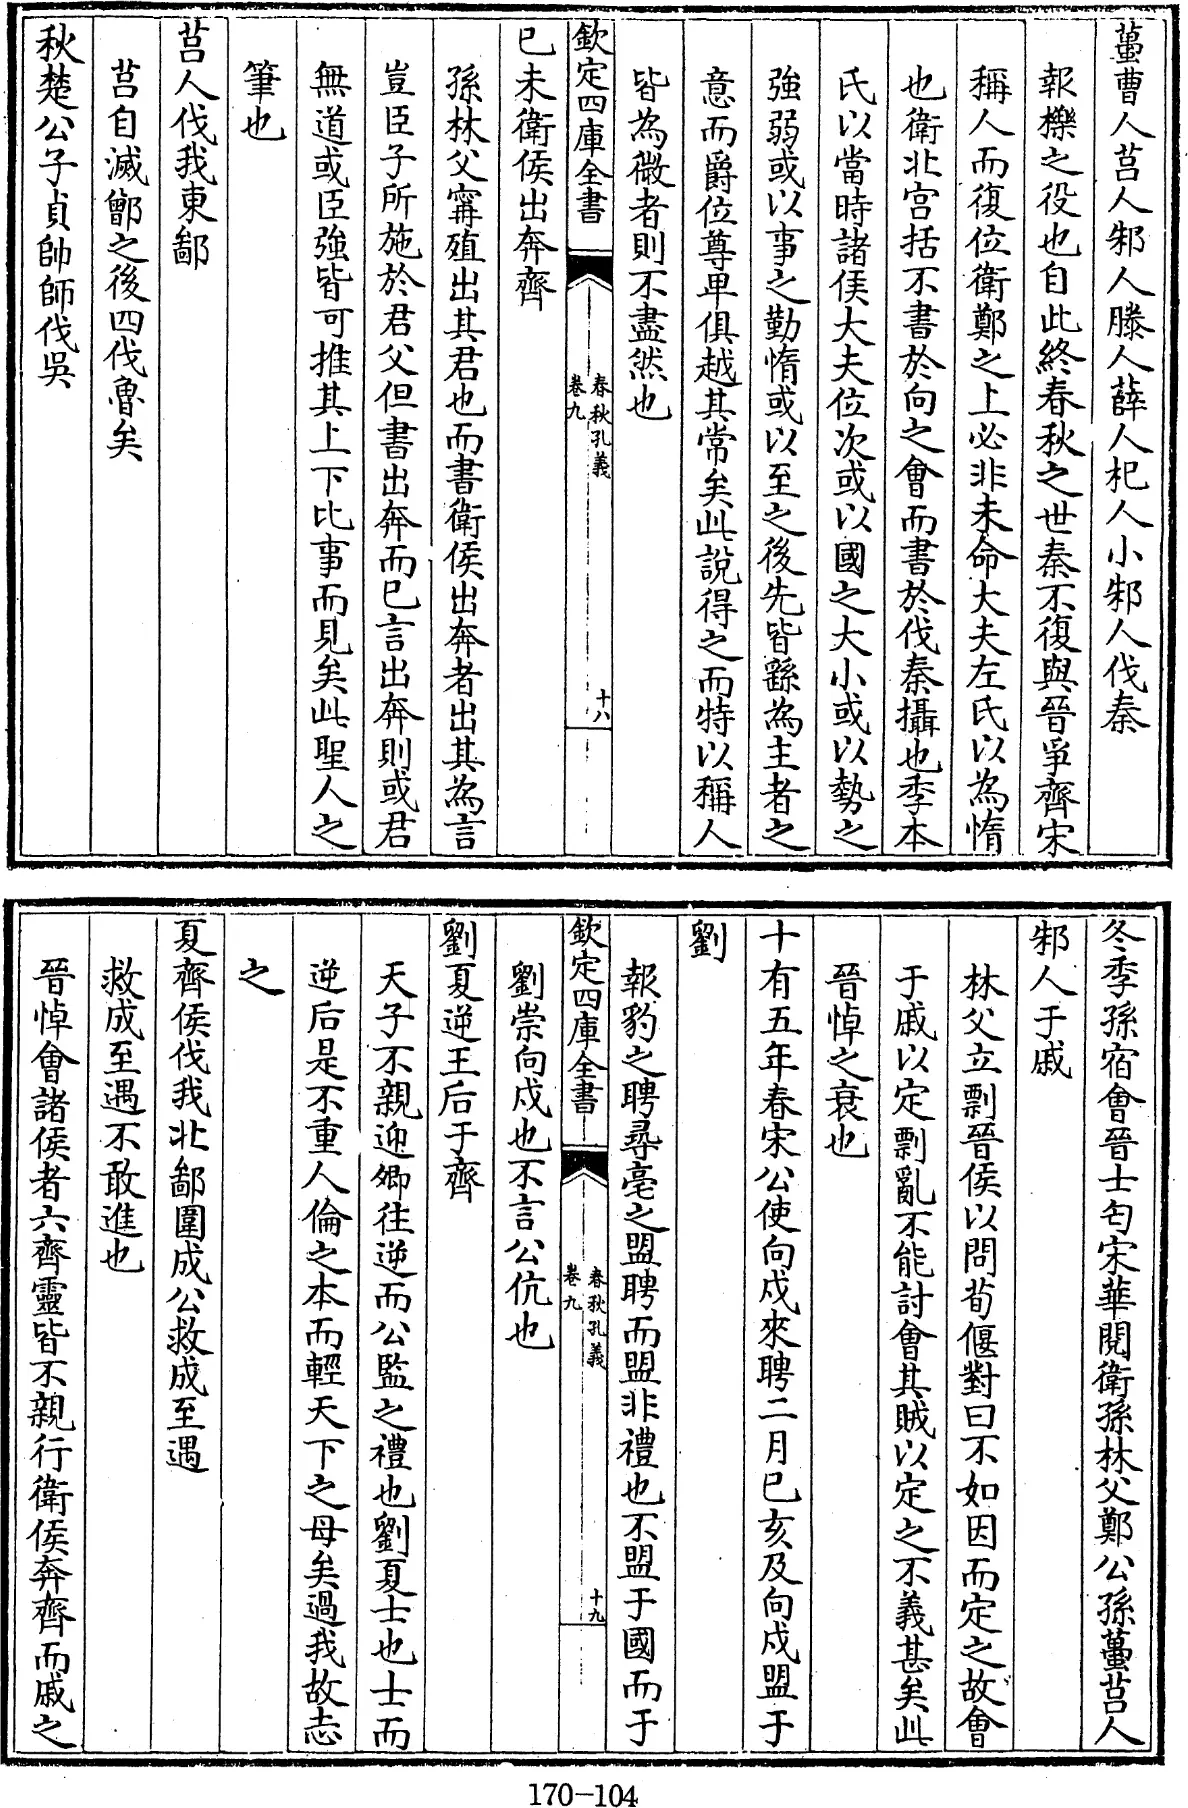 蠆曹人莒人邾人滕人薛人杞人小邾人伐秦
報櫟之役也自此終春秋之世秦不復與晉爭齊宋
稱人而復位衛鄭之上必非未命大夫左氏以為惰
也衛北宫括不書於向之會而書於伐秦攝也季本
氏以當時諸侯大夫位次或以國之大小或以勢之
強弱或以事之勤惰或以至之後先皆繇為主者之
意而爵位尊卑俱越其常矣此說得之而特以稱人
皆為微者則不盡然也
欽定四庫全書
春秋孔義
卷九
十八
已未衛侯出奔齊
孫林父甯殖出其君也而書衛侯出奔者出其為言
豈臣子所施於君父但書出奔而已言出奔則或君
無道或臣強皆可推其上下比事而見矣此聖人之
筆也
莒人伐我東鄙
莒自滅鄫之後四伐魯矣
秋楚公子貞帥師伐吳
冬季孫宿會晉士匄宋華閱衛孫林父鄭公孫蠆莒人
邾人于戚
林父立剽晉侯以問荀偃對曰不如因而定之故會
于戚以定剽亂不能討會其賊以定之不義甚矣此
晉悼之衰也
十有五年春宋公使向戌來聘二月已亥及向戌盟于
劉
報豹之聘尋亳之盟聘而盟非禮也不盟于國而于
欽定四庫全書
春秋孔義
卷九
十九
劉崇向戌也不言公伉也
劉夏逆王后于齊
天子不親迎卿往逆而公監之禮也劉夏士也士而
逆后是不重人倫之本而輕天下之母矣過我故志
之
夏齊侯伐我北鄙圍成公救成至遇
救成至遇不敢進也
晉悼會諸侯者六齊靈皆不親行衛侯奔齊而戚之
170-104